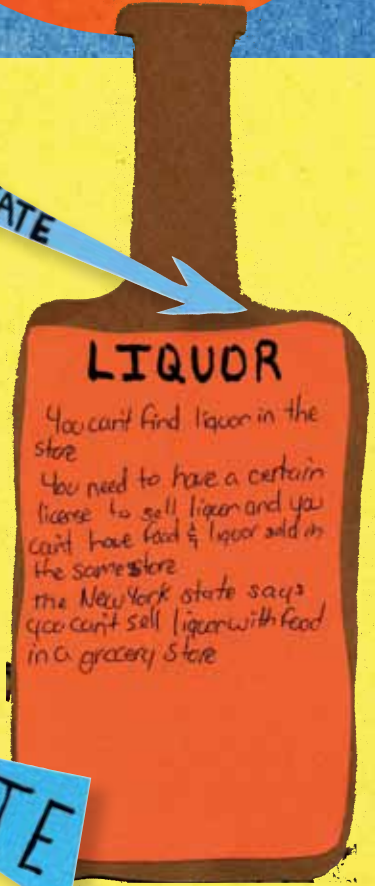 ATE
LIQUOR
You can't find liquor in the
store
You need to have a certain
license to sell liquor and you
can't have food & liquor sold in
the same store
the New York state says
you can't sell liquor with food
in a grocery store
TE